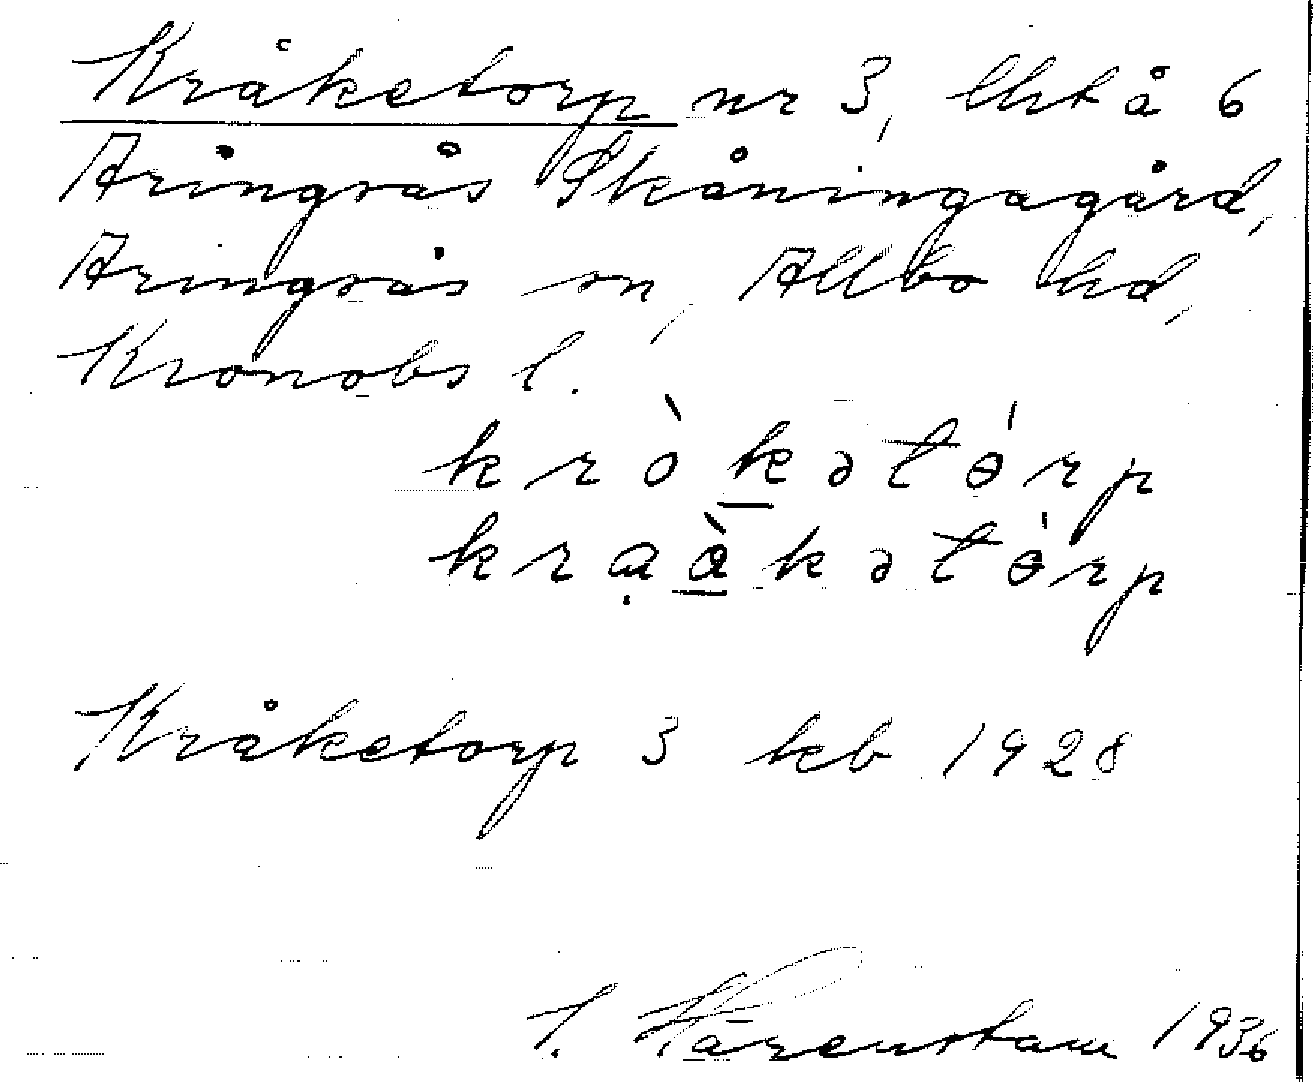 Kråketorp nr 3, lht å 6
Aringsås Skåningagård,
Aringsås sn, Allbo hd,
Kronobs l.
kròkətɵ́rp
krạàkətɵ́rp
Kråketorp 3 kb 1928
Härenstam 1936